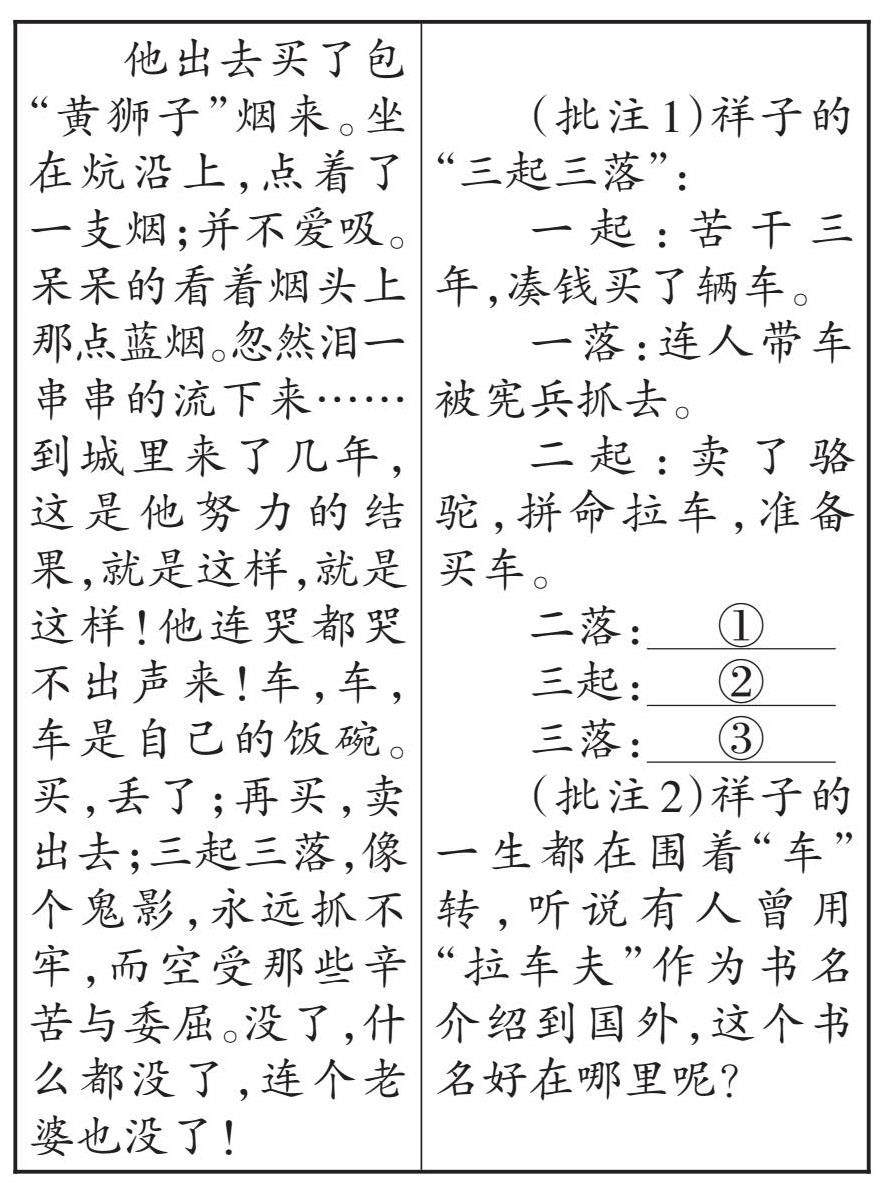 他出去买了包
“黄狮子”烟来。坐
在炕沿上,点着了
一支烟;并不爱吸。
呆呆的看着烟头上
那点蓝烟。忽然泪一
串串的流下来……
到城里来了几年,
这是他努力的结
果,就是这样,就是
这样!他连哭都哭
不出声来!车,车,
车是自己的饭碗。
买,丢了;再买,卖
出去;三起三落,像
个鬼影,永远抓不
牢,而空受那些辛
苦与委屈。没了,什
么都没了,连个老
婆也没了!
(批注1)祥子的
“三起三落”:
一起:苦干三
年,凑钱买了辆车。
一落:连人带车
被宪兵抓去。
二起:卖了骆
驼,拼命拉车,准备
买车。
二落:①
三起:②
三落:③
(批注2)祥子的
一生都在围着“车”
转,听说有人曾用
“拉车夫”作为书名
介绍到国外,这个书
名好在哪里呢?